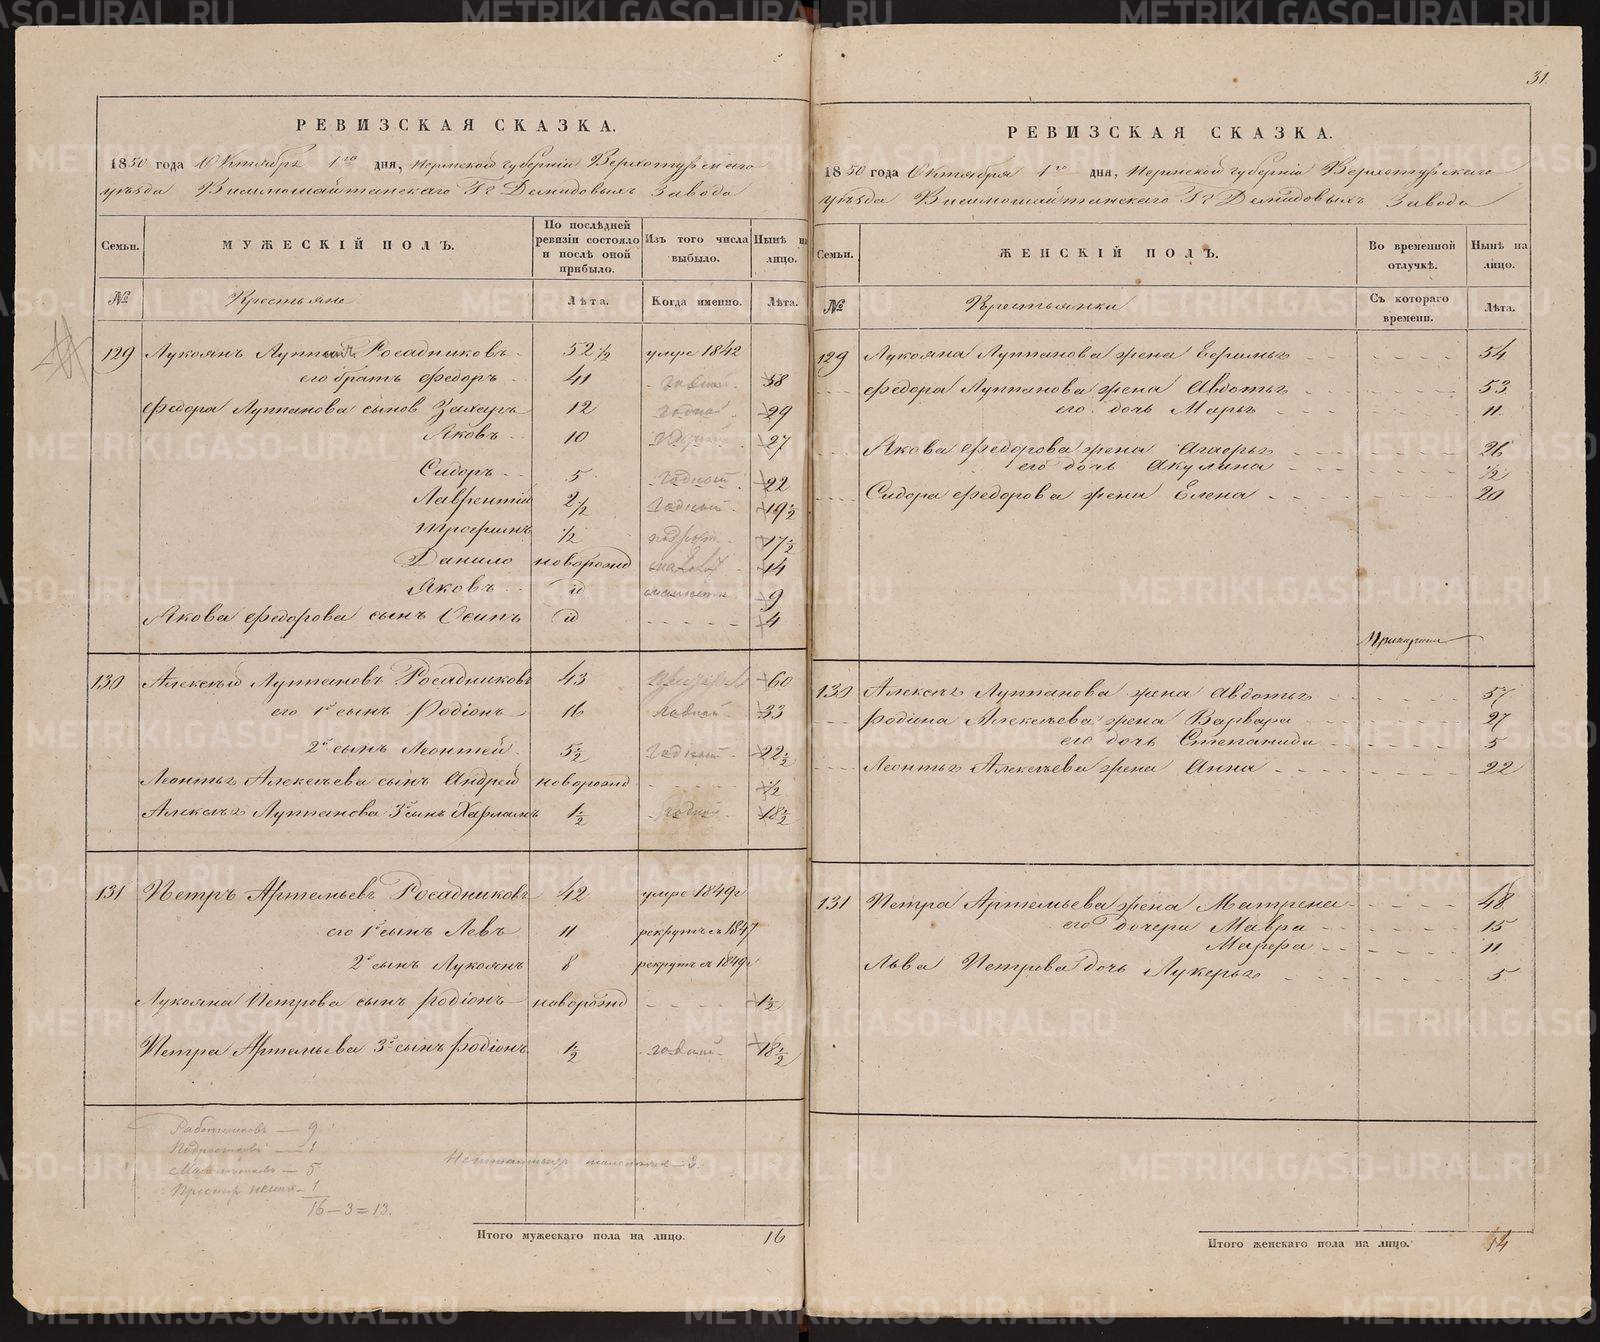 31.
РЕВИЗСКАЯ СКАЗКА.
1850 года Октября 1го дня, Пермской губерніи Верхотурскаго
уѣзда Висимошайтанскаго Гг Демидовыхъ Завода
Семьи.
МУЖЕСКІЙ ПОЛЪ.
По послѣдней ревизіи состояло и послѣ оной прибыло.
Изъ того числа выбыло.
Нынѣ на лицо.
№ Крестьяне Лѣта. Когда именно. Лѣта.
129 Лукоянъ Росадниковъ 52½ умре 1842
его братъ Федоръ 41 годной 58
Федора Луппанова сынов Захаръ 12 годной 29
Яковъ 10 годной 27
Сидоръ 5 годной 22
Лаврентій 2½ годной 19½
Трофимъ ½ подрост 17½
Данило новорожд 14
Яковъ id 9
Якова Федорова сынъ Осипъ id 4
130 Алексѣй Луппановъ Росадниковъ 43 60
его 1й сынъ Родіонъ 16 годной 33
2й сынъ Леонтей 5½ годной 22½
Леонтья Алексѣева сынъ Андрей новорожд ½
Алексѣя Луппанова 3й сынъ Харламъ 1½ годной 18½
131 Петръ Артемьевъ Росадниковъ 42 умре 1849г
его 1й сынъ Левъ 11 рекрутъ съ 1847
2й сынъ Лукоянъ 8 рекрутъ съ 1849г
Лукояна Петрова сынъ Родіонъ новорожд 1½
Петра Артемьева 3й сынъ Родіонъ 1½ годной 18½
Работниковъ — 9
Подростковъ — 1
Малолѣтковъ — 5
1
16 – 3 = 13.
Итого мужескаго пола на лицо. 16
РЕВИЗСКАЯ СКАЗКА.
1850 года Октября 1го дня, Пермской губерніи Верхотурскаго
уѣзда Висимошайтанскаго Гг Демидовыхъ Завода
Семьи.
ЖЕНСКІЙ ПОЛЪ.
Во временной отлучкѣ.
Нынѣ на лицо.
№ Крестьянки Съ котораго времени. Лѣта.
129 Лукояна Луппанова жена Ефимья 54
Федора Луппанова жена Авдотья 53
его дочь Марья 11
Якова Федорова жена Агафья 26
его дочь Акулина ½
Сидора Федорова жена Елена 20
130 Алексѣя Луппанова жена Авдотья 57
Родіона Алексѣева жена Варвара 27
его дочь Степанида 5
Леонтья Алексѣева жена Анна 22
131 Петра Артемьева жена Матрена 48
его дочери Мавра 15
Марфа 11
Льва Петрова дочь Лукерья 5
Итого женскаго пола на лицо. 14
METRIKI.GASO-URAL.RU